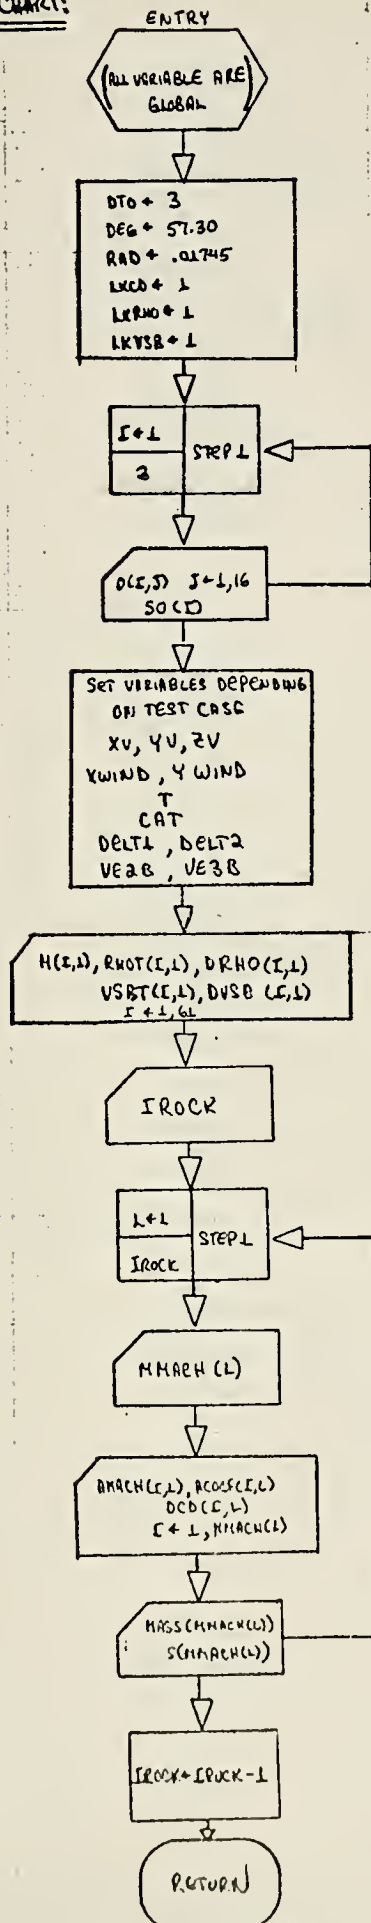 CHART:
ENTRY
(ALL VARIABLE ARE
GLOBAL)
DTO ← 3
DEG ← 57.30
RAD ← .01745
LKCD ← 1
LKRHO ← 1
LKVSB ← 1
I ← 1
3
STEP 1
D(I,J) J ← 1,16
SO(I)
SET VARIABLES DEPENDING
ON TEST CASE
XV, YV, ZV
XWIND, YWIND
T
CAT
DELT1, DELT2
VE2B, VE3B
H(I,1), RHOT(I,1), DRHO(I,1)
VSBT(I,1), DVSB(I,1)
I ← 1,61
IROCK
L ← 1
IROCK
STEP 1
MMACH(L)
AMACH(I,L), ACOEF(I,L)
DCD(I,L)
I ← 1, MMACH(L)
MASS(MMACH(L))
S(MMACH(L))
IROCK ← IROCK - 1
RETURN